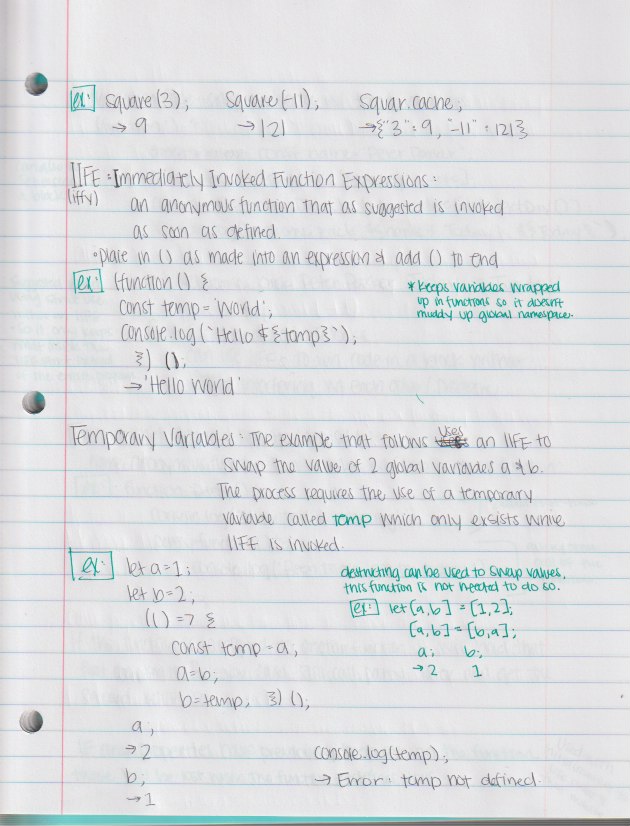 ex: square(3); square(-11); squar.cache;
→ 9 → 121 → {"3": 9, "-11": 121}
IIFE: Immediately Invoked Function Expressions:
(iffy) an anonymous function that as suggested is invoked
as soon as defined.
• place in () as made into an expression & add () to end
ex: (function () {
const temp = 'World';
console.log(`Hello ${temp}`);
}) ();
→ 'Hello World'
* keeps variables wrapped
up in functions so it doesn't
muddy up global namespace.
Temporary Variables: The example that follows uses an IIFE to
swap the value of 2 global variables a & b.
The process requires the use of a temporary
variable called temp which only exsists while
IIFE is invoked.
ex: let a=1;
let b=2;
(() => {
const temp = a;
a=b;
b=temp; }) ();
a;
→ 2
b;
→ 1
destructing can be used to swap values,
this function is not needed to do so.
ex: let [a,b] = [1,2];
[a,b] = [b,a];
a; b;
→ 2 1
console.log(temp);
→ Error: temp not defined.